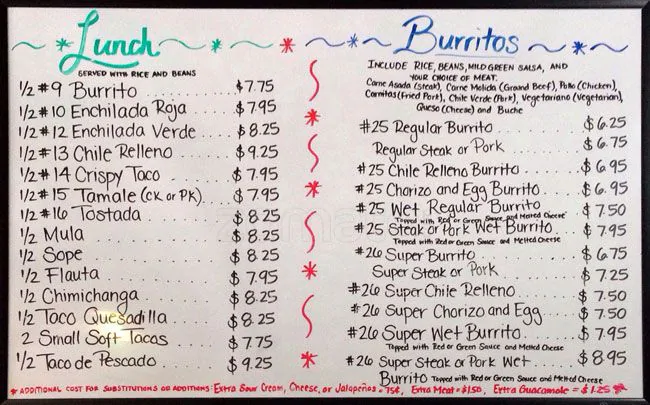 Lunch
SERVED WITH RICE AND BEANS
1/2 #9 Burrito $7.75
1/2 #10 Enchilada Roja $7.95
1/2 #12 Enchilada Verde $8.25
1/2 #13 Chile Relleno $9.25
1/2 #14 Crispy Taco $7.95
1/2 #15 Tamale (CK or PK) $7.95
1/2 #16 Tostada $8.25
1/2 Mula $8.25
1/2 Sope $8.25
1/2 Flauta $7.95
1/2 Chimichanga $8.25
1/2 Taco Quesadilla $8.25
2 Small Soft Tacos $7.75
1/2 Taco de Pescado $9.25
Burritos
INCLUDE RICE, BEANS, MILD GREEN SALSA, AND
YOUR CHOICE OF MEAT.
Carne Asada (Steak), Carne Molida (Ground Beef), Pollo (Chicken),
Carnitas (Fried Pork), Chile Verde (Pork), Vegetariano (Vegetarian),
Queso (Cheese) and Buche
#25 Regular Burrito $6.25
Regular Steak or Pork $6.75
#25 Chile Relleno Burrito $6.95
#25 Chorizo and Egg Burrito $6.95
#25 Wet Regular Burrito $7.50
Topped with Red or Green Sauce and Melted Cheese
#25 Steak or Pork Wet Burrito $7.95
Topped with Red or Green Sauce and Melted Cheese
#26 Super Burrito $6.75
Super Steak or Pork $7.25
#26 Super Chile Relleno $7.50
#26 Super Chorizo and Egg $7.50
#26 Super Wet Burrito $7.95
Topped with Red or Green Sauce and Melted Cheese
#26 Super Steak or Pork Wet $8.95
Burrito Topped with Red or Green Sauce and Melted Cheese
* ADDITIONAL COST FOR SUBSTITUTIONS OR ADDITIONS: Extra Sour Cream, Cheese, or Jalapeños = 75¢, Extra Meat = $1.50, Extra Guacamole = $1.25 *